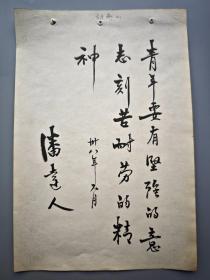 青年要有坚强的意
志刻苦耐劳的精
神
卅八年六月
潘達人